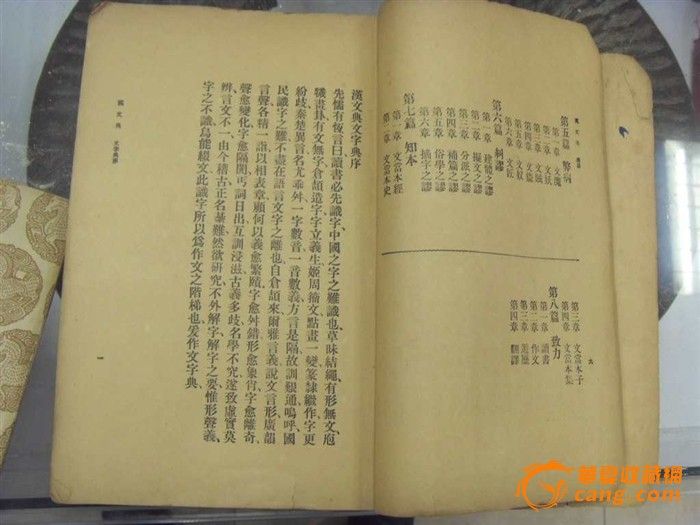 漢文典 目錄
第五篇 弊病
第一章 文魔
第二章
第三章 文賊
第四章
第五章 文奴
第六章 文匠
第六篇 糾謬
第一章 之謬
第二章 擬文之謬
第三章 分派之謬
第四章 補篇之謬
第五章 俗學之謬
第六章 插字之謬
第七篇 知本
第一章 文當本經
第二章 文當本史
第三章 文當本子
第四章 文當本集
第八篇 致力
第一章 讀書
第二章 作文
第三章 遊歷
第四章 翻譯
六
漢文典文字典序
先儒有恆言曰讀書必先識字、中國之字之難識也、草昧結繩、有形無文、庖
犧畫卦、有文無字、倉頡造字、字立義生、姬周籀文、點畫一變、篆隸繼作、字更
紛歧、秦楚異言、名尤乖外、一字數音、一音數義、方言是隔、故訓艱通、嗚呼、國
民識字之難、不盡在語言文字之離也、自倉頡來、爾雅言義、說文言形、廣韻
言聲、各精一詣、以相表章、顧何以義愈繁賾、字愈舛錯、形愈象肖、字愈離奇、
聲愈變化、字愈隔閡、丐詞日出、互訓浸滋、古義多歧、名學不究、遂致虛實莫
辨、言文不一、由今稽古、正名綦難、然欲研究、不外解字、解字之要、惟形聲義、
字之不識、烏能綴文、此識字所以爲作文之階梯也、爰作文字典、
漢文典 文字典序
一
華夏收藏網
cang.com